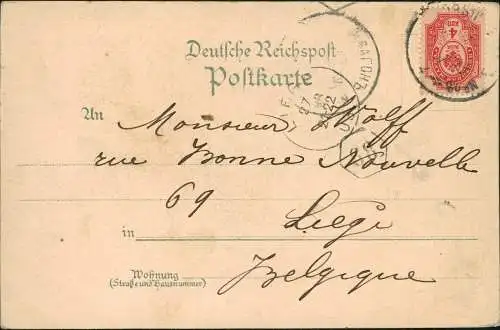 Deutsche Reichspost
Postkarte
An
Monsieur Wolff
rue Bonne Nouvelle
69
in
Liege
Belgique
Wohnung
(Straße und Hausnummer)
ВАГОНЪ
27
22
4